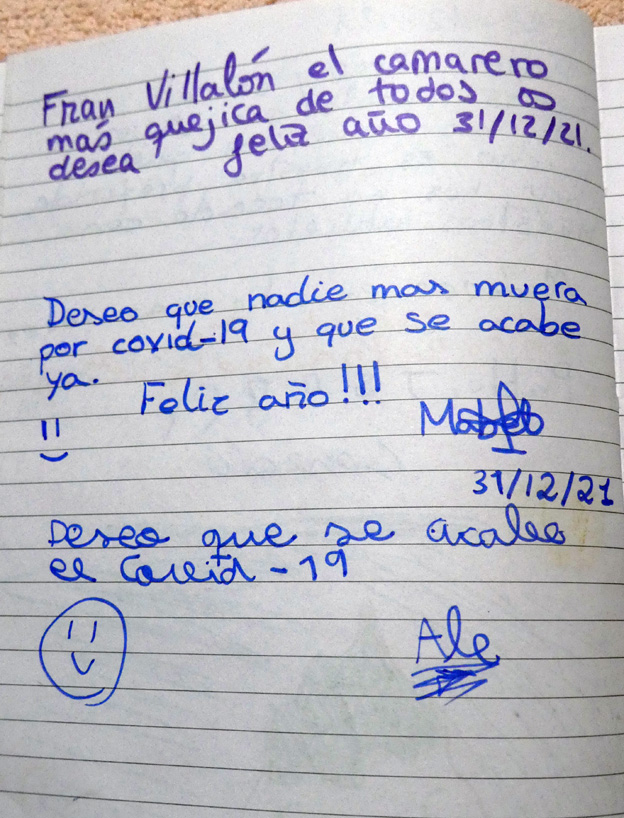 Fran Villalón el camarero
más quejica de todos os
desea feliz año 31/12/21.
Deseo que nadie mas muera
por covid-19 y que se acabe
ya.
Feliz año!!!
31/12/21
Deseo que se acabe
el Covid-19
Ale